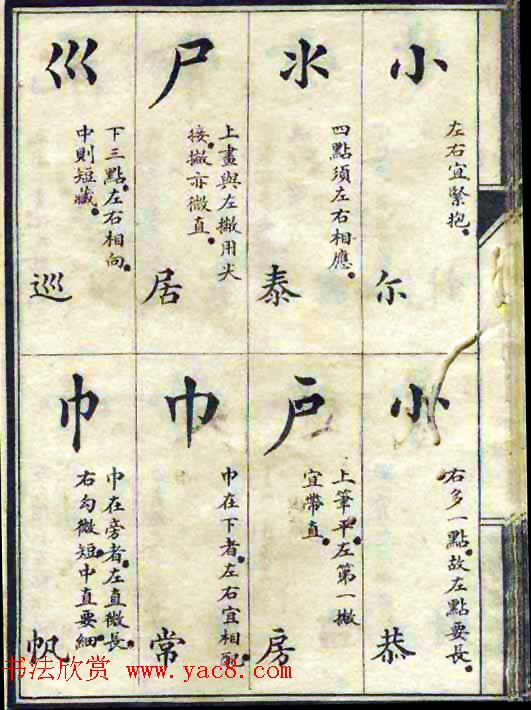 小
左右宜緊抱
尔
氺
四點須左右相應
泰
尸
上畫與左撇用尖
接撇亦微直
居
巛
下三點左右相向
中則短藏
巡
㣺
右多一點故左點要長
恭
戶
上筆平左第一撇
宜帶直
房
巾
巾在下者左右宜相配
常
巾
巾在旁者左直微長
右勾微短中直要細
帆
书法欣赏 www.yac8.com